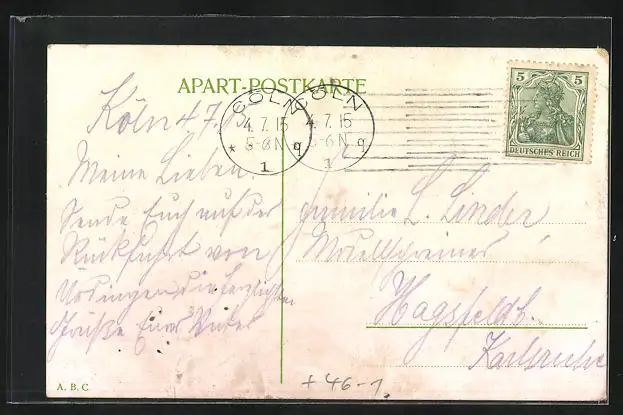 APART-POSTKARTE
CÖLN
4.7.15
* 5-6N q
1
CÖLN
4.7.15
5-6N q
1
5 5
DEUTSCHES REICH
Köln 4.7.15
Meine Lieben
Sende Euch auf der
Rückfahrt von
Ürdingen die herzlichsten
Grüße Euer Vater
Familie L. Linder
Hagsfeld b.
Karlsruhe
A. B. C
+ 46-1